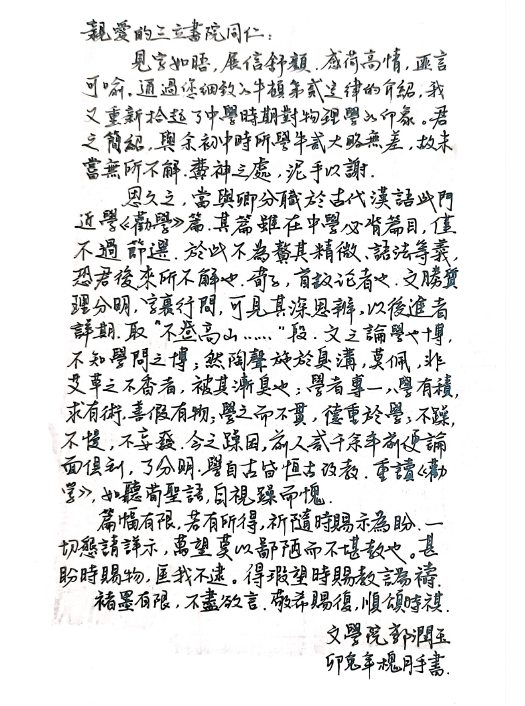 親愛的三立書院同仁：
見字如晤，展信舒顏．感荷高情，匪言
可喻．通過您細致入牛頓第貳定律的介紹，我
又重新拾起了中學時期對物理學的印象。君
之簡紹，與余初中時所學牛貳大略無差，故未
嘗無所不解．費神之處，泥手以謝．
思久之，當與卿分職於古代漢語此門
近學《勸學》篇．其篇雖在中學必背篇目，僅
不過節選．於此不為贅其精微、語法等義，
恐君後來所不解也．荀子，首故論者也．文勝質
理分明，字裏行間，可見其深思辨，以後進者
詳期．取“不登高山……”段．文之論學也博，
不知學問之博；然陶聲施於臭溝，莫佩，非
艾草之不香者，被其漸臭也；學者專一，學有積，
求有術．善假有物；學之而不貫，德重於學；不躁，
不慢，不妄發．今之躁因，前人貳千余年前便論
面俱到，了分明．學自古皆恒古改教．重讀《勸
學》，如聽荀聖語，自視躁而愧．
篇幅有限，若有所得，祈隨時賜示為盼．一
切懇請詳示，萬望莫以鄙陋而不堪教也。甚
盼時賜物，匡我不逮。得瑕望時賜教誨為禱．
褚墨有限，不盡欲言．敬希賜復，順頌時祺．
文學院郭潤玉
卯兔年槐月手書．